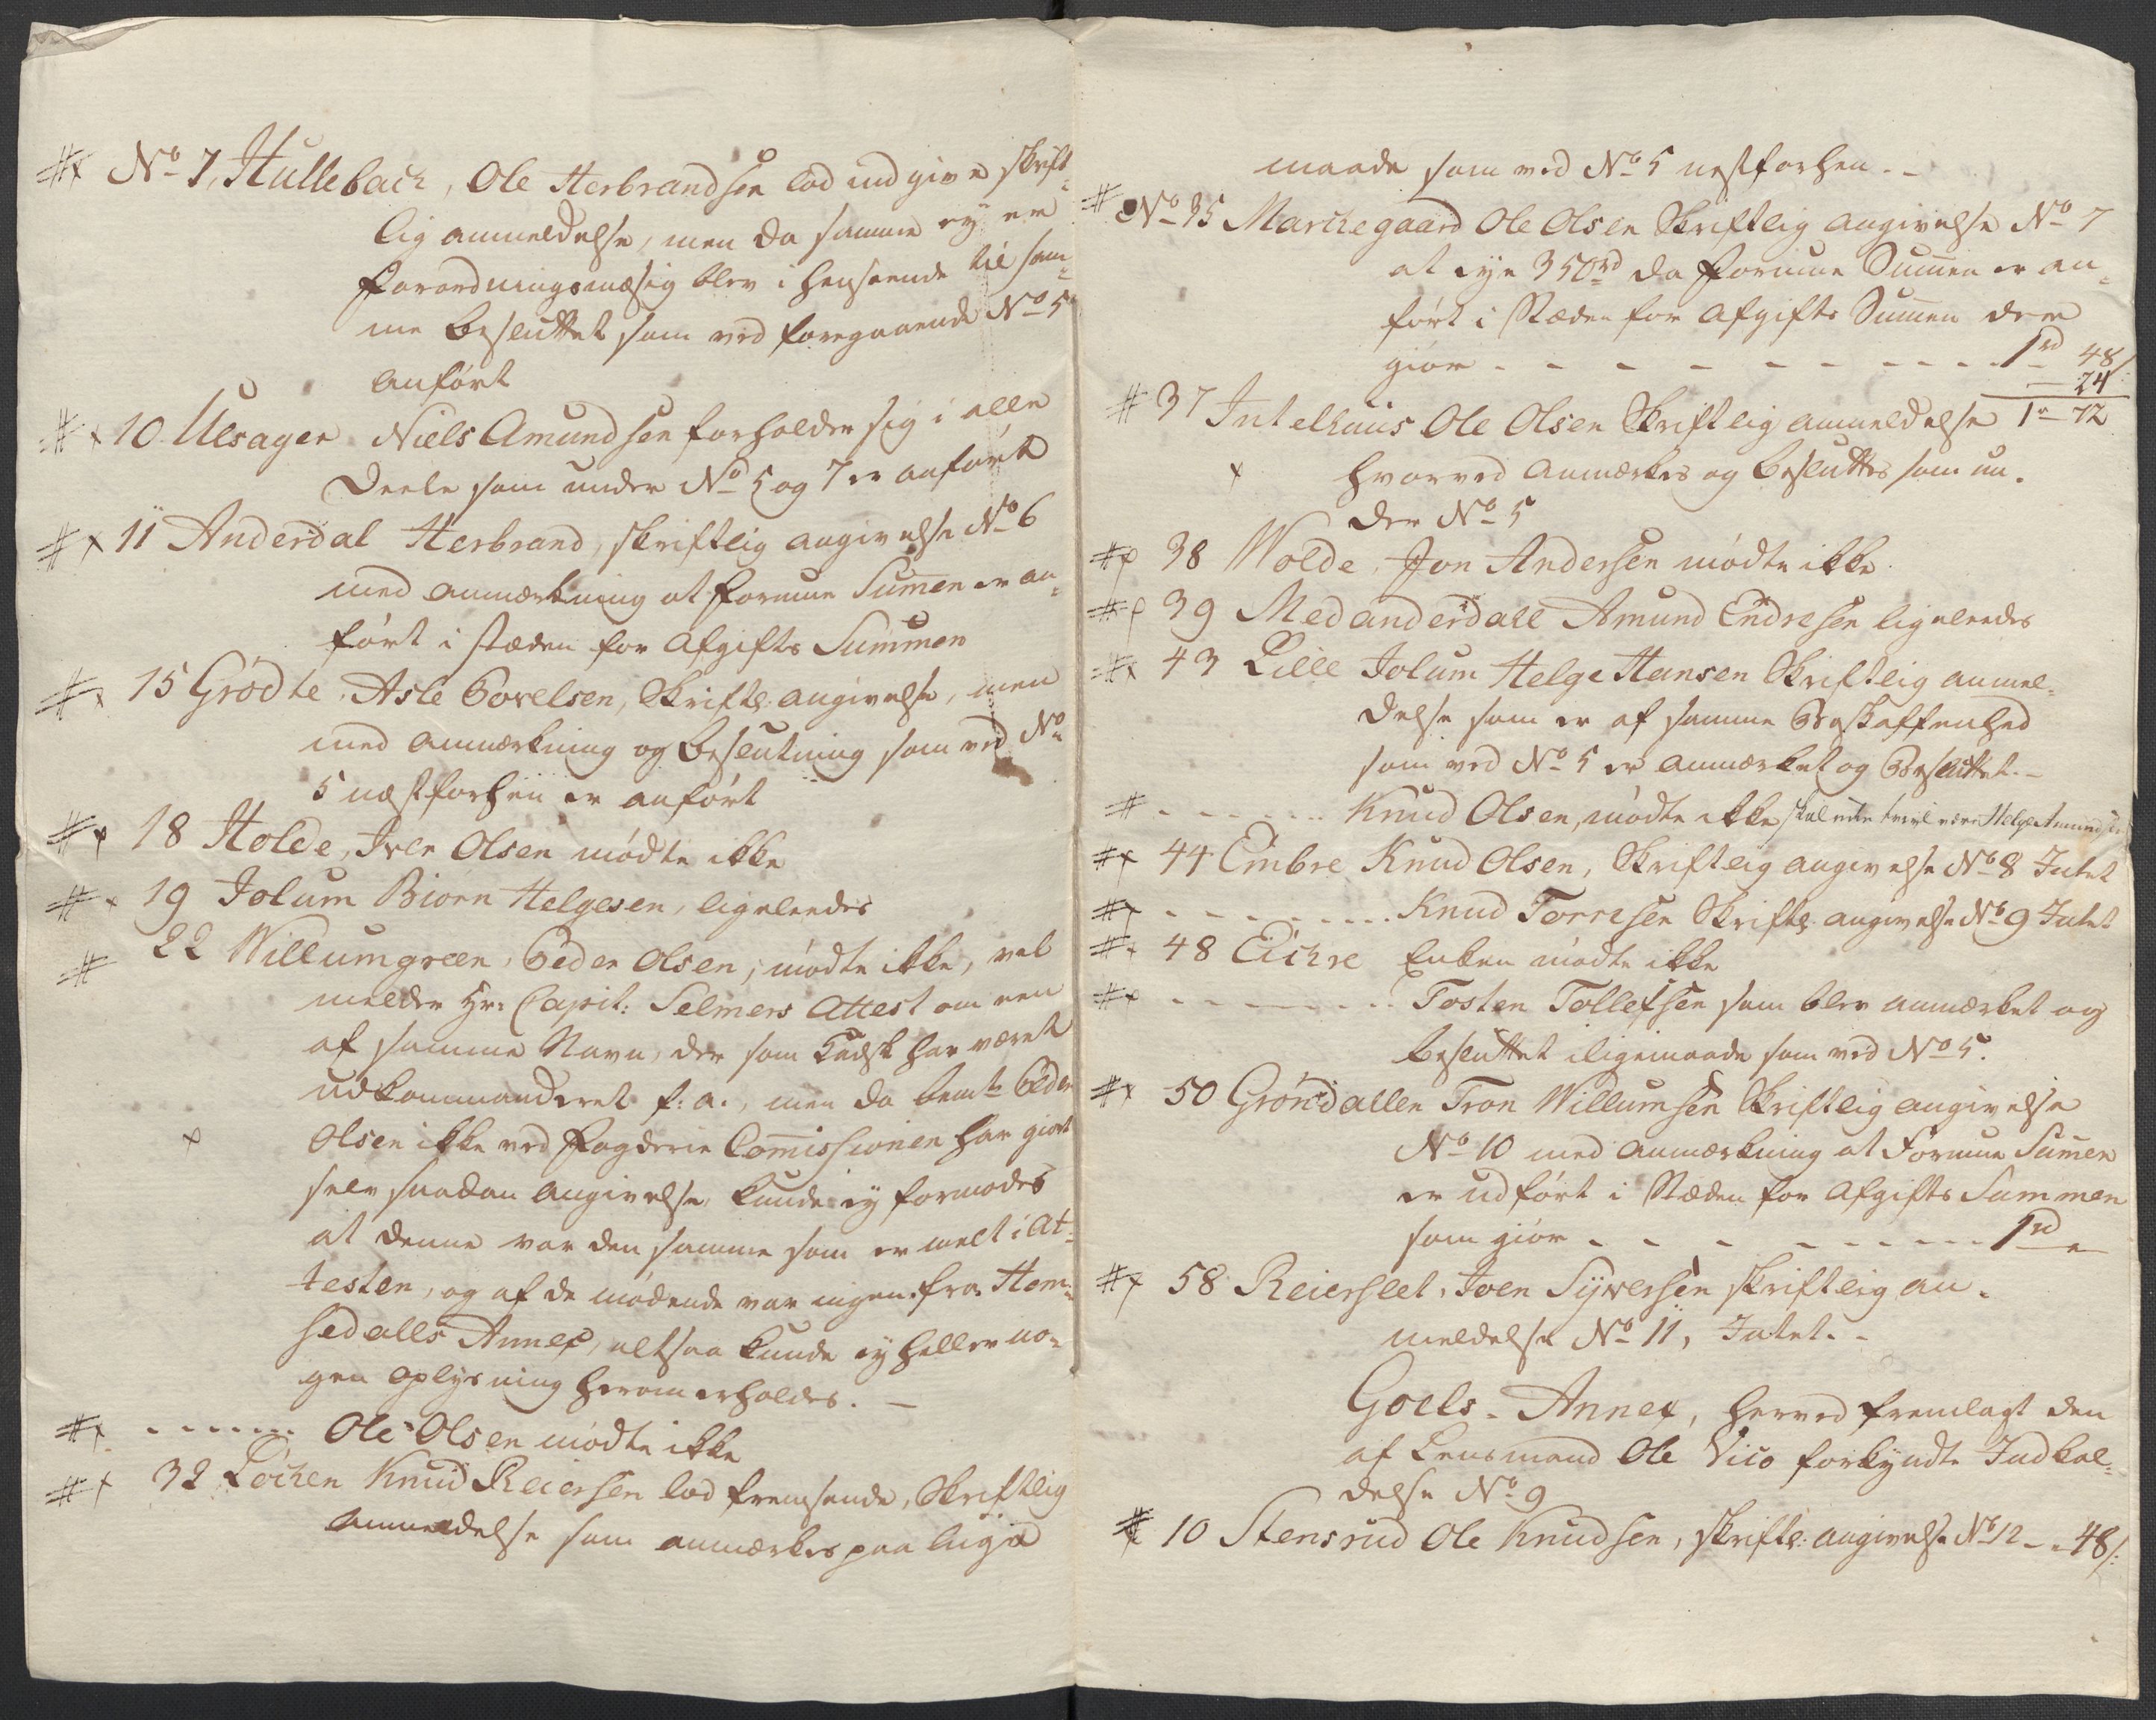 #x No 7, Hullebach, Ole Herbrandsen lod indgive skrift-
lig anmeldelse, men da samme ey er
forordningsmæsig blev i henseende til sam-
me besluttet som ved foregaaende No 5
anført
#x 10 Ulsager Niels Amundsen forholder sig i alle
Deele som under No 5 og 7 er anført
#x 11 Anderdal Herbrand, skriftlig angivelse No 6
med anmærkning at formue Sum̅en er an-
ført i stæden for Afgifts Summen
#x 15 Grødte, Asle Povelsen, Skriftl: angivelse, men
med anmærkning og beslutning som ved No
5 næstforhen er anført
#x 18 Holde, Iver Olsen mødte ikke
#x 19 Jolum Biørn Helgesen, ligeleedes
# 22 Willumgreen, Peder Olsen, mødte ikke, vel
melder Hr: Capit: Selmers Attest om een
af samme Navn, der som Kudsk har været
udkommanderet p: a:, men da bemte Peder
x Olsen ikke ved Fogderie Com̅issionen har giort
selv saadan angivelse, kunde ey formodes
at denne var den samme som er melt i At-
testen, og af de mødende var ingen fra Hem-
sedalls Annex, altsaa kunde ey heller no-
gen oplysning herom erholdes. —
#x ------ Ole Olsen mødte ikke
#x 32 Løchen Knud Reiersen lod fremsende, Skriftlig
Anmeldelse som anmærkes paa lige
maade som ved No 5 nestforhen. -
# No 35 Marchegaard Ole Olsen Skriftlig angivelse No 7
at eye 350rd da formue Sum̅en er an-
ført i Stæden for Afgifts Sum̅en der
giør - - - - - - - - - 1rd 48/
— 24
# 37 Intelhuus Ole Olsen Skriftlig anmeldelse 1 - 72
x hvorved anmærkes og besluttes som un-
der No 5
#x 38 Wolde, Jon Andersen mødte ikke
#x 39 Medanderdall Amund Endresen ligeleedes
#x 43 Lille Jolum Helge Hansen Skriftlig anmel-
delse som er af samme Beskaffenhed
som ved No 5 er anmærket og Besluttet. -
# ------ Knud Olsen, mødte ikke skal uden tvivl være Helge Amundsen
#x 44 Embre Knud Olsen, Skriftlig angivelse No 8 Intet
#x -------- Knud Torresen Skriftl: angivelse No 9 Intet
#x 48 Eichre Enken mødte ikke
#x -------- Tosten Tollefsen som blev anmærket og
besluttet iligemaade som ved No 5.
#x 50 Grøndallen Tron Willumsen Skriftlig angivelse
No 10 med anmærkning at Formue Sum̅en
er udført i Stæden for Afgifts Summen
som giør - - - - - - - - 1rd —
#x 58 Reierslet, Joen Syversen skriftlig an-
meldelse No 11, Intet. -
Goels Annex, herved fremlagt den
af Lensmand Ole Vico forkyndte Indkal-
delse No 9
# 10 Stensrud Ole Knudsen, skriftl: angivelse No 12 - - 48/: